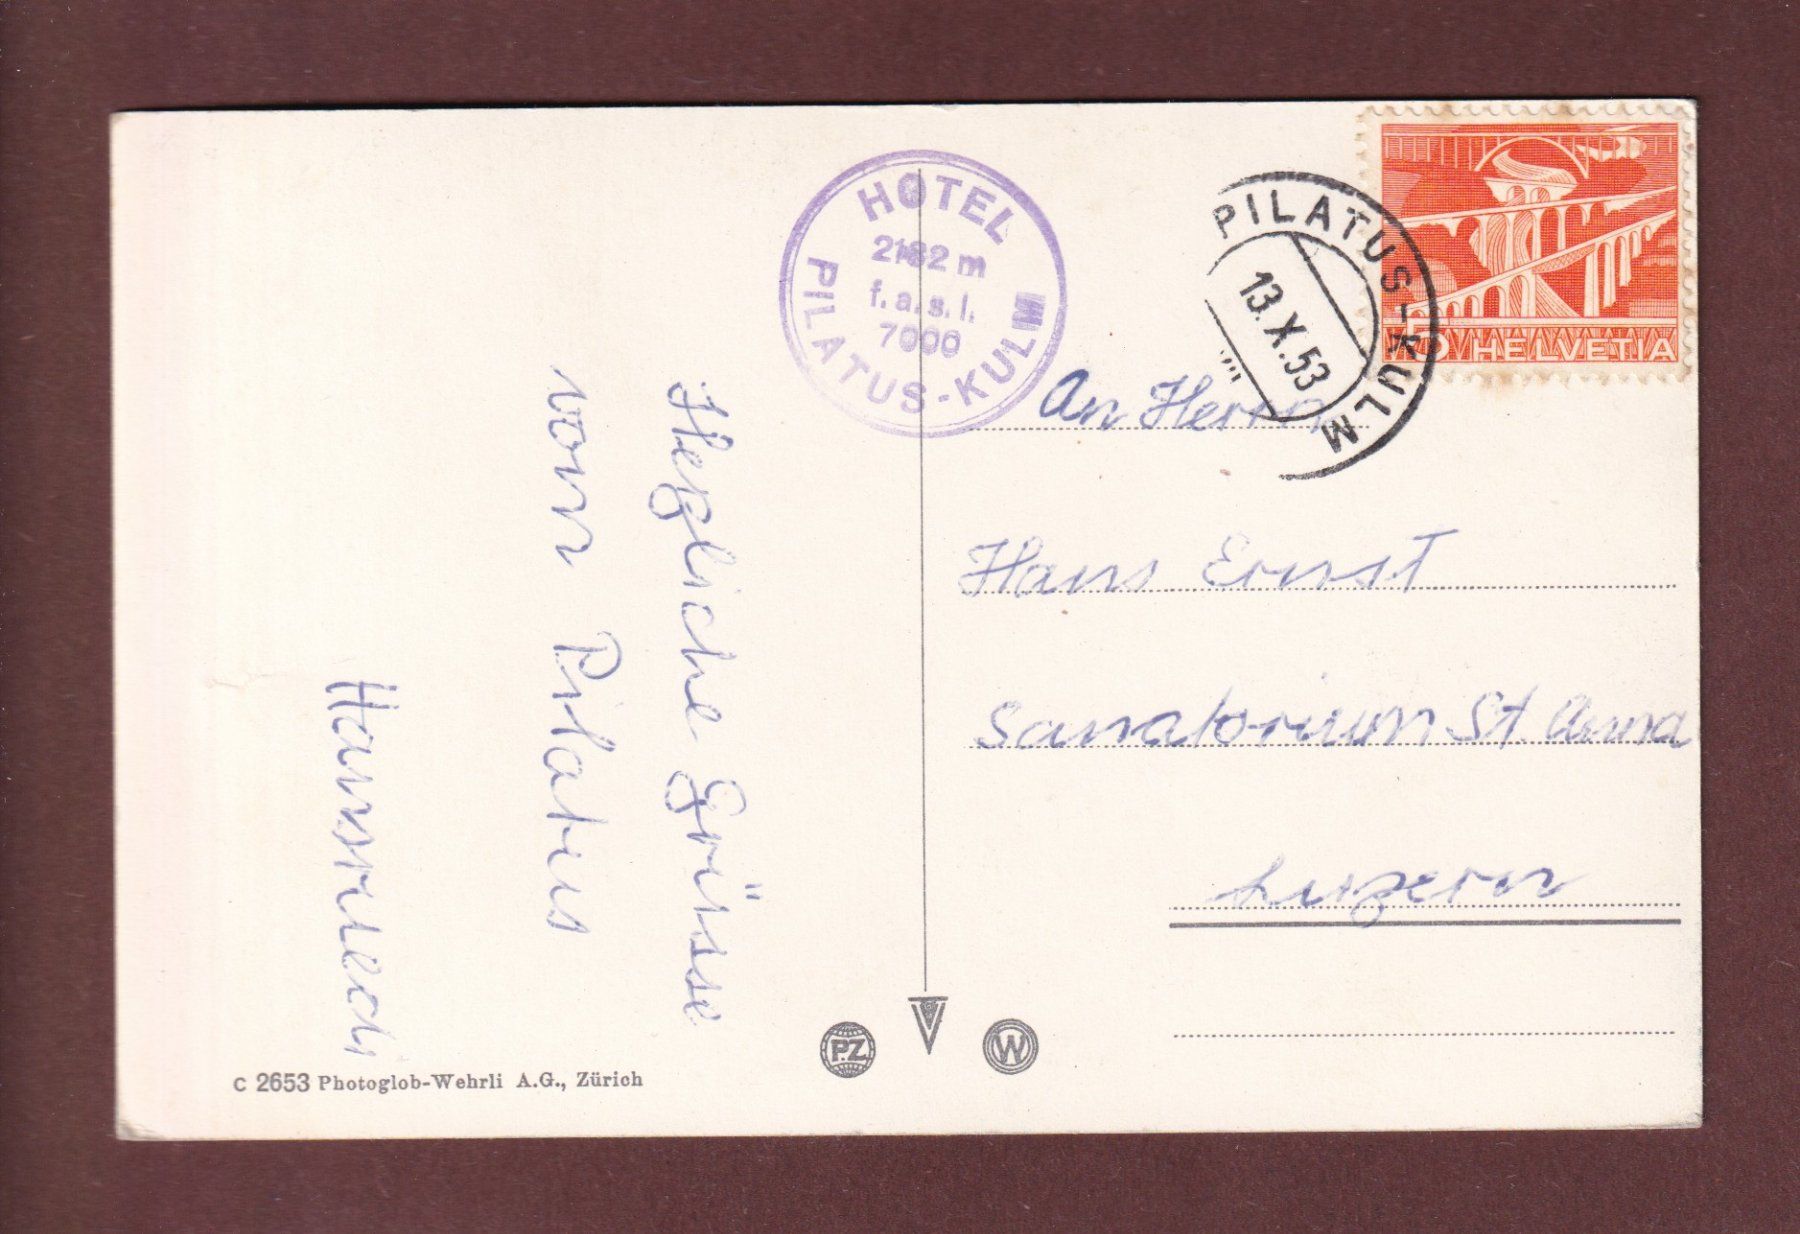 HOTEL
2132 m
f.a.s.l.
7000
PILATUS-KULM
PILATUS-KULM
13.X.53
HELVETIA
An Herrn
Hans Ernst
Sanatorium St. Anna
Luzern
Herzliche Grüsse
vom Pilatus
Hansruedi
C 2653 Photoglob-Wehrli A.G., Zürich
P.Z.
W